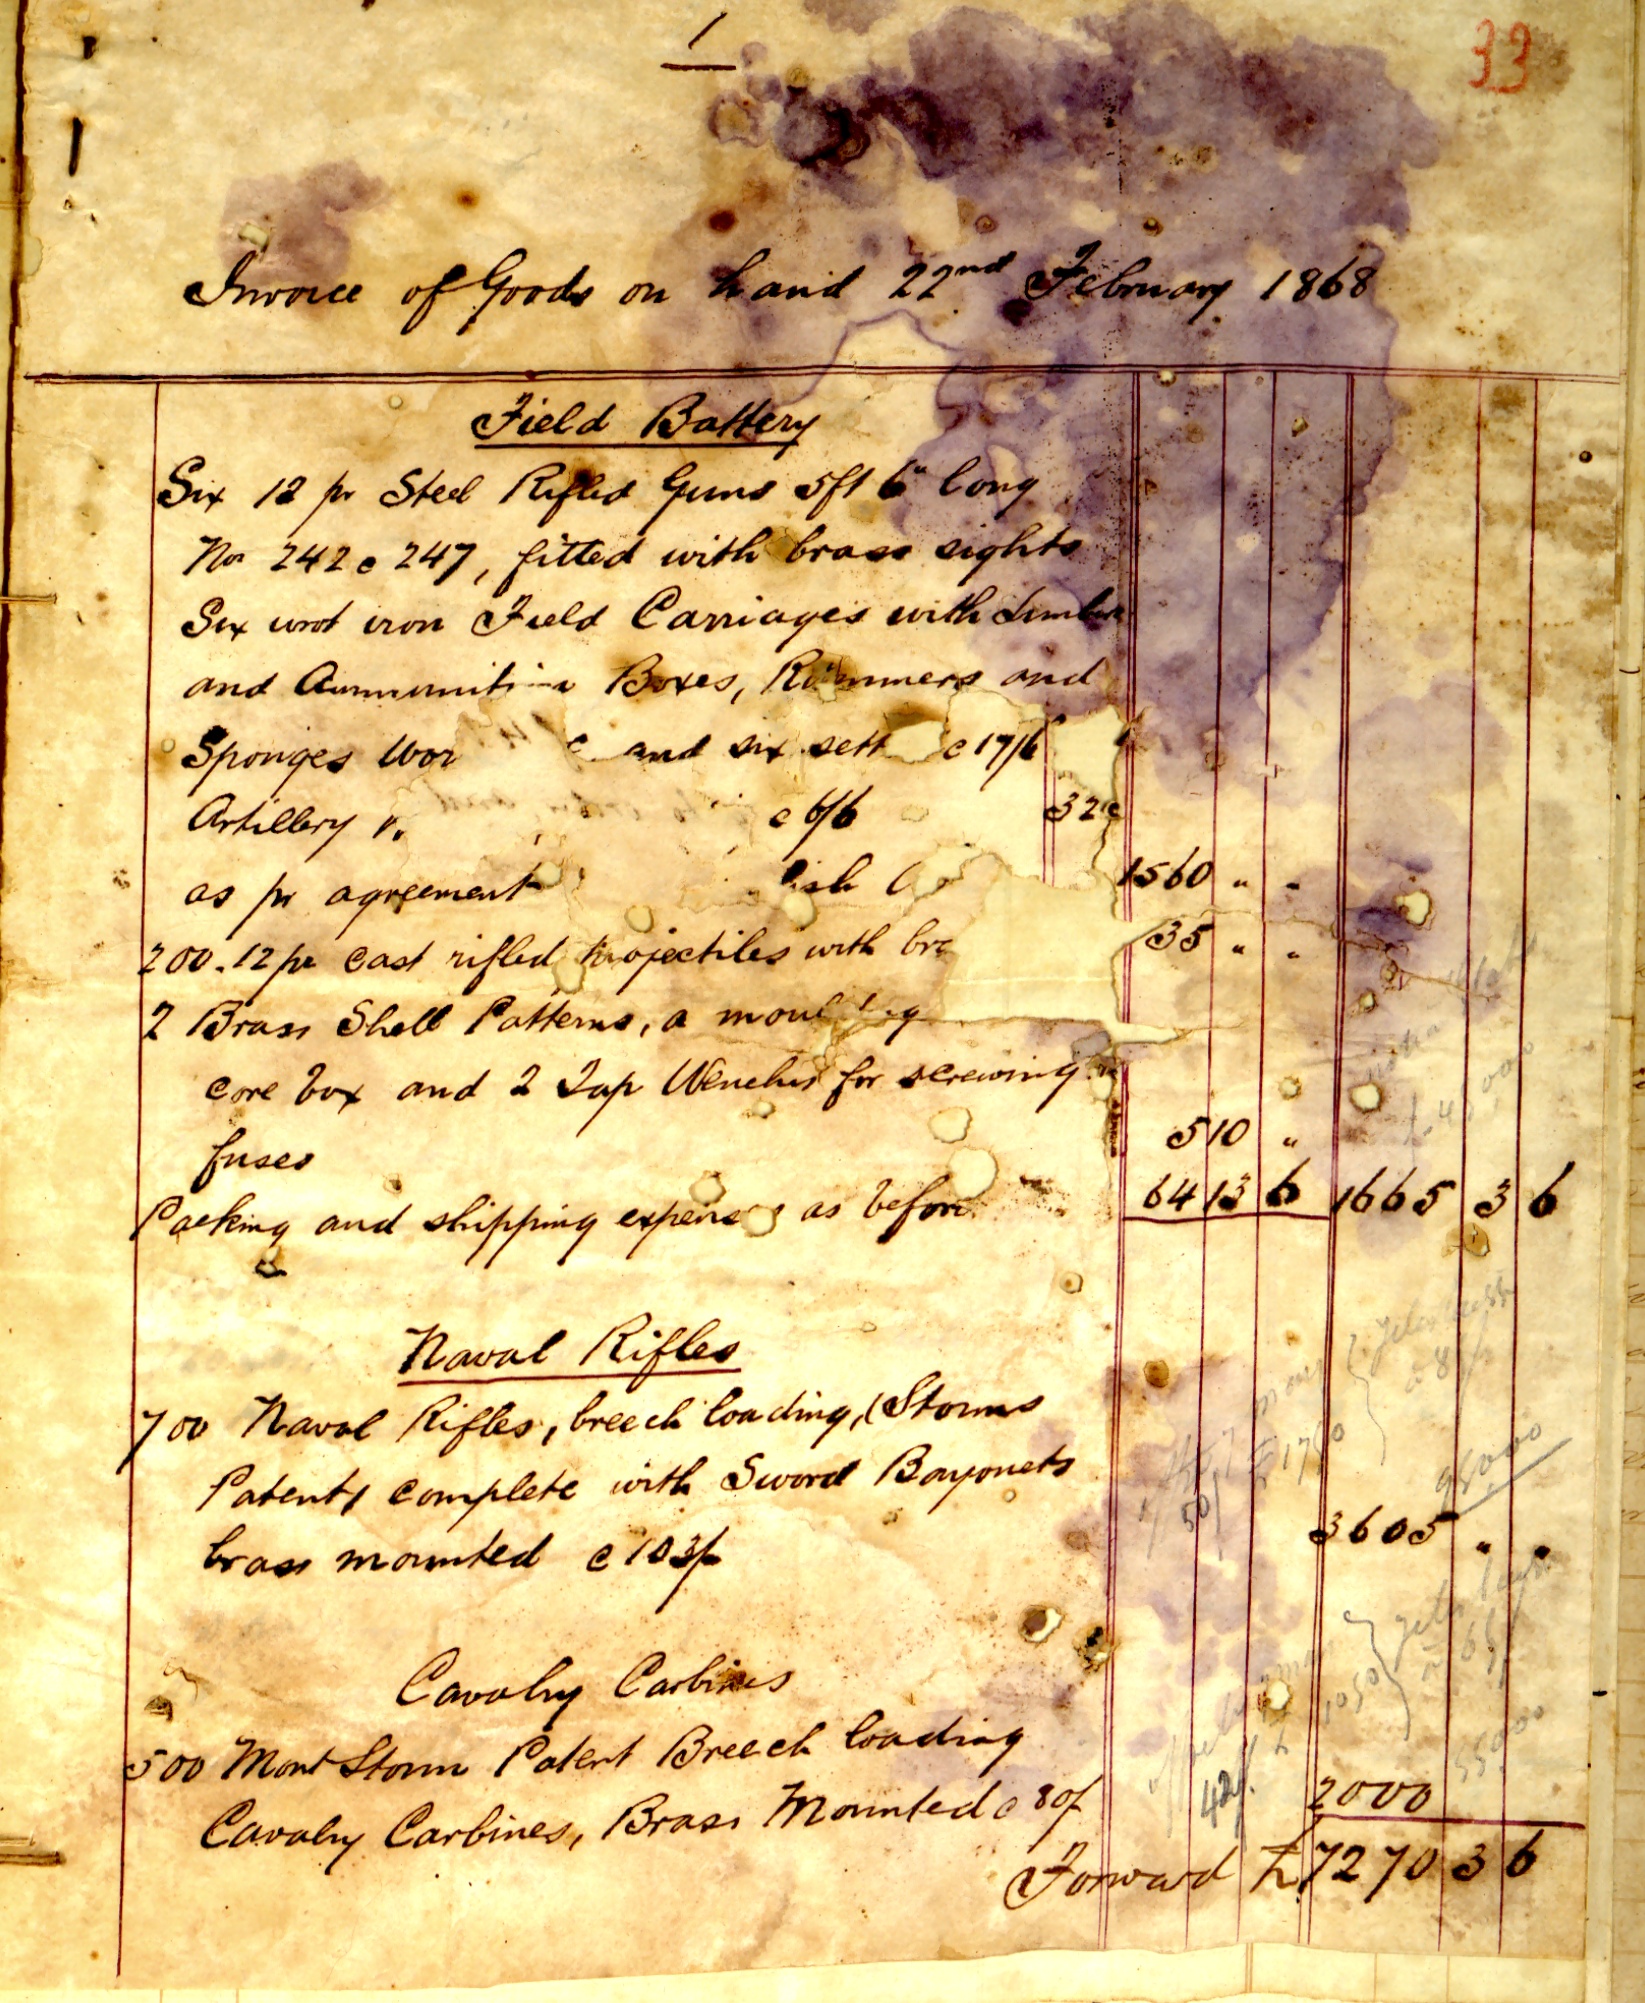 1
33
Invoice of Goods on hand 22nd February 1868
Field Battery
Six 12 pr Steel Rifled Guns 5ft 6" long
Nos 242 @ 247, fitted with brass sights
Six wrot iron Field Carriages with
and Ammunition Boxes, Rammers and
Sponges and six sett
Artillery
as pr agreement 1560 " "
200. 12 pr cast rifled projectiles with 35 " "
2 Brass Shell Patterns, a moulding
core box and 2 Tap Wenches for screwing
fuses 5 10 "
Packing and shipping expenses as before 64 13 6 1665 3 6
Naval Rifles
700 Naval Rifles, breech loading, (Storms
Patent) complete with Sword Bayonets
brass mounted @ 103/- 3605 " "
Cavalry Carbines
500 Mont Storm Patent Breech loading
Cavalry Carbines, Brass Mounted @ 80/- 2000
Forward £ 7270 3 6